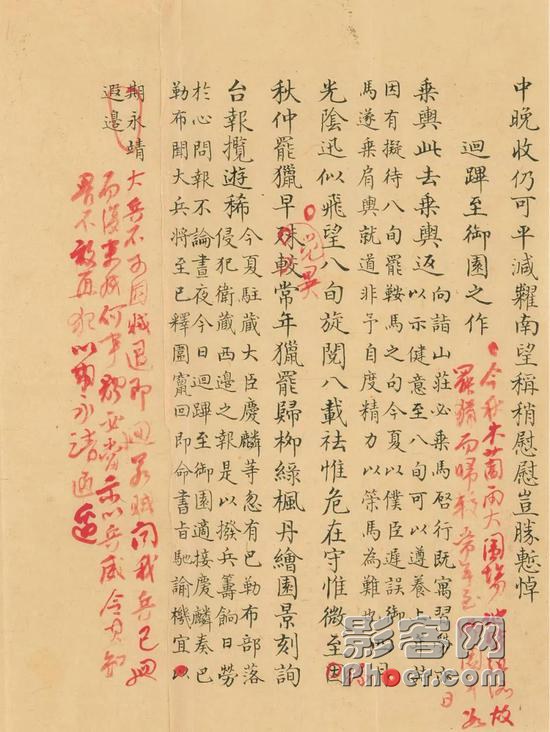 中晚收仍可平減糶南望稱稍慰慰豈勝慙悼
迴蹕至御園之作
今秋木蘭雨大圍場
罷獵而歸較常年至
乘輿此去乘輿返
向詣山莊必乘馬啓行既寓習勞
以示健意至八旬可以遵養
因有擬待八旬罷鞍馬之句今夏以僕臣遲誤御
馬遂乘肩輿就道非予自度精力以策馬為難
光陰迅似飛望八旬旋閱八載祛惟危在守惟微至因
秋仲罷獵早殊較常年獵罷歸柳綠楓丹繪園景刻詢
覺異
台報攬遊稀
今夏駐藏大臣慶麟等忽有巴勒布部落
侵犯衛藏西邊之報是以撥兵籌餉日勞
於心問報不論晝夜今日迴蹕至御園適接慶麟奏巴
勒布聞大兵將至已釋圍竄回即命書旨馳諭機宜以
期永靖
遐邊
大兵不可因賊退即迴若賊聞我兵已迴
而復來成何事耶必當示以兵威令其知
畏不敢再犯以期永靖遐邊
影客网
Phoer.com